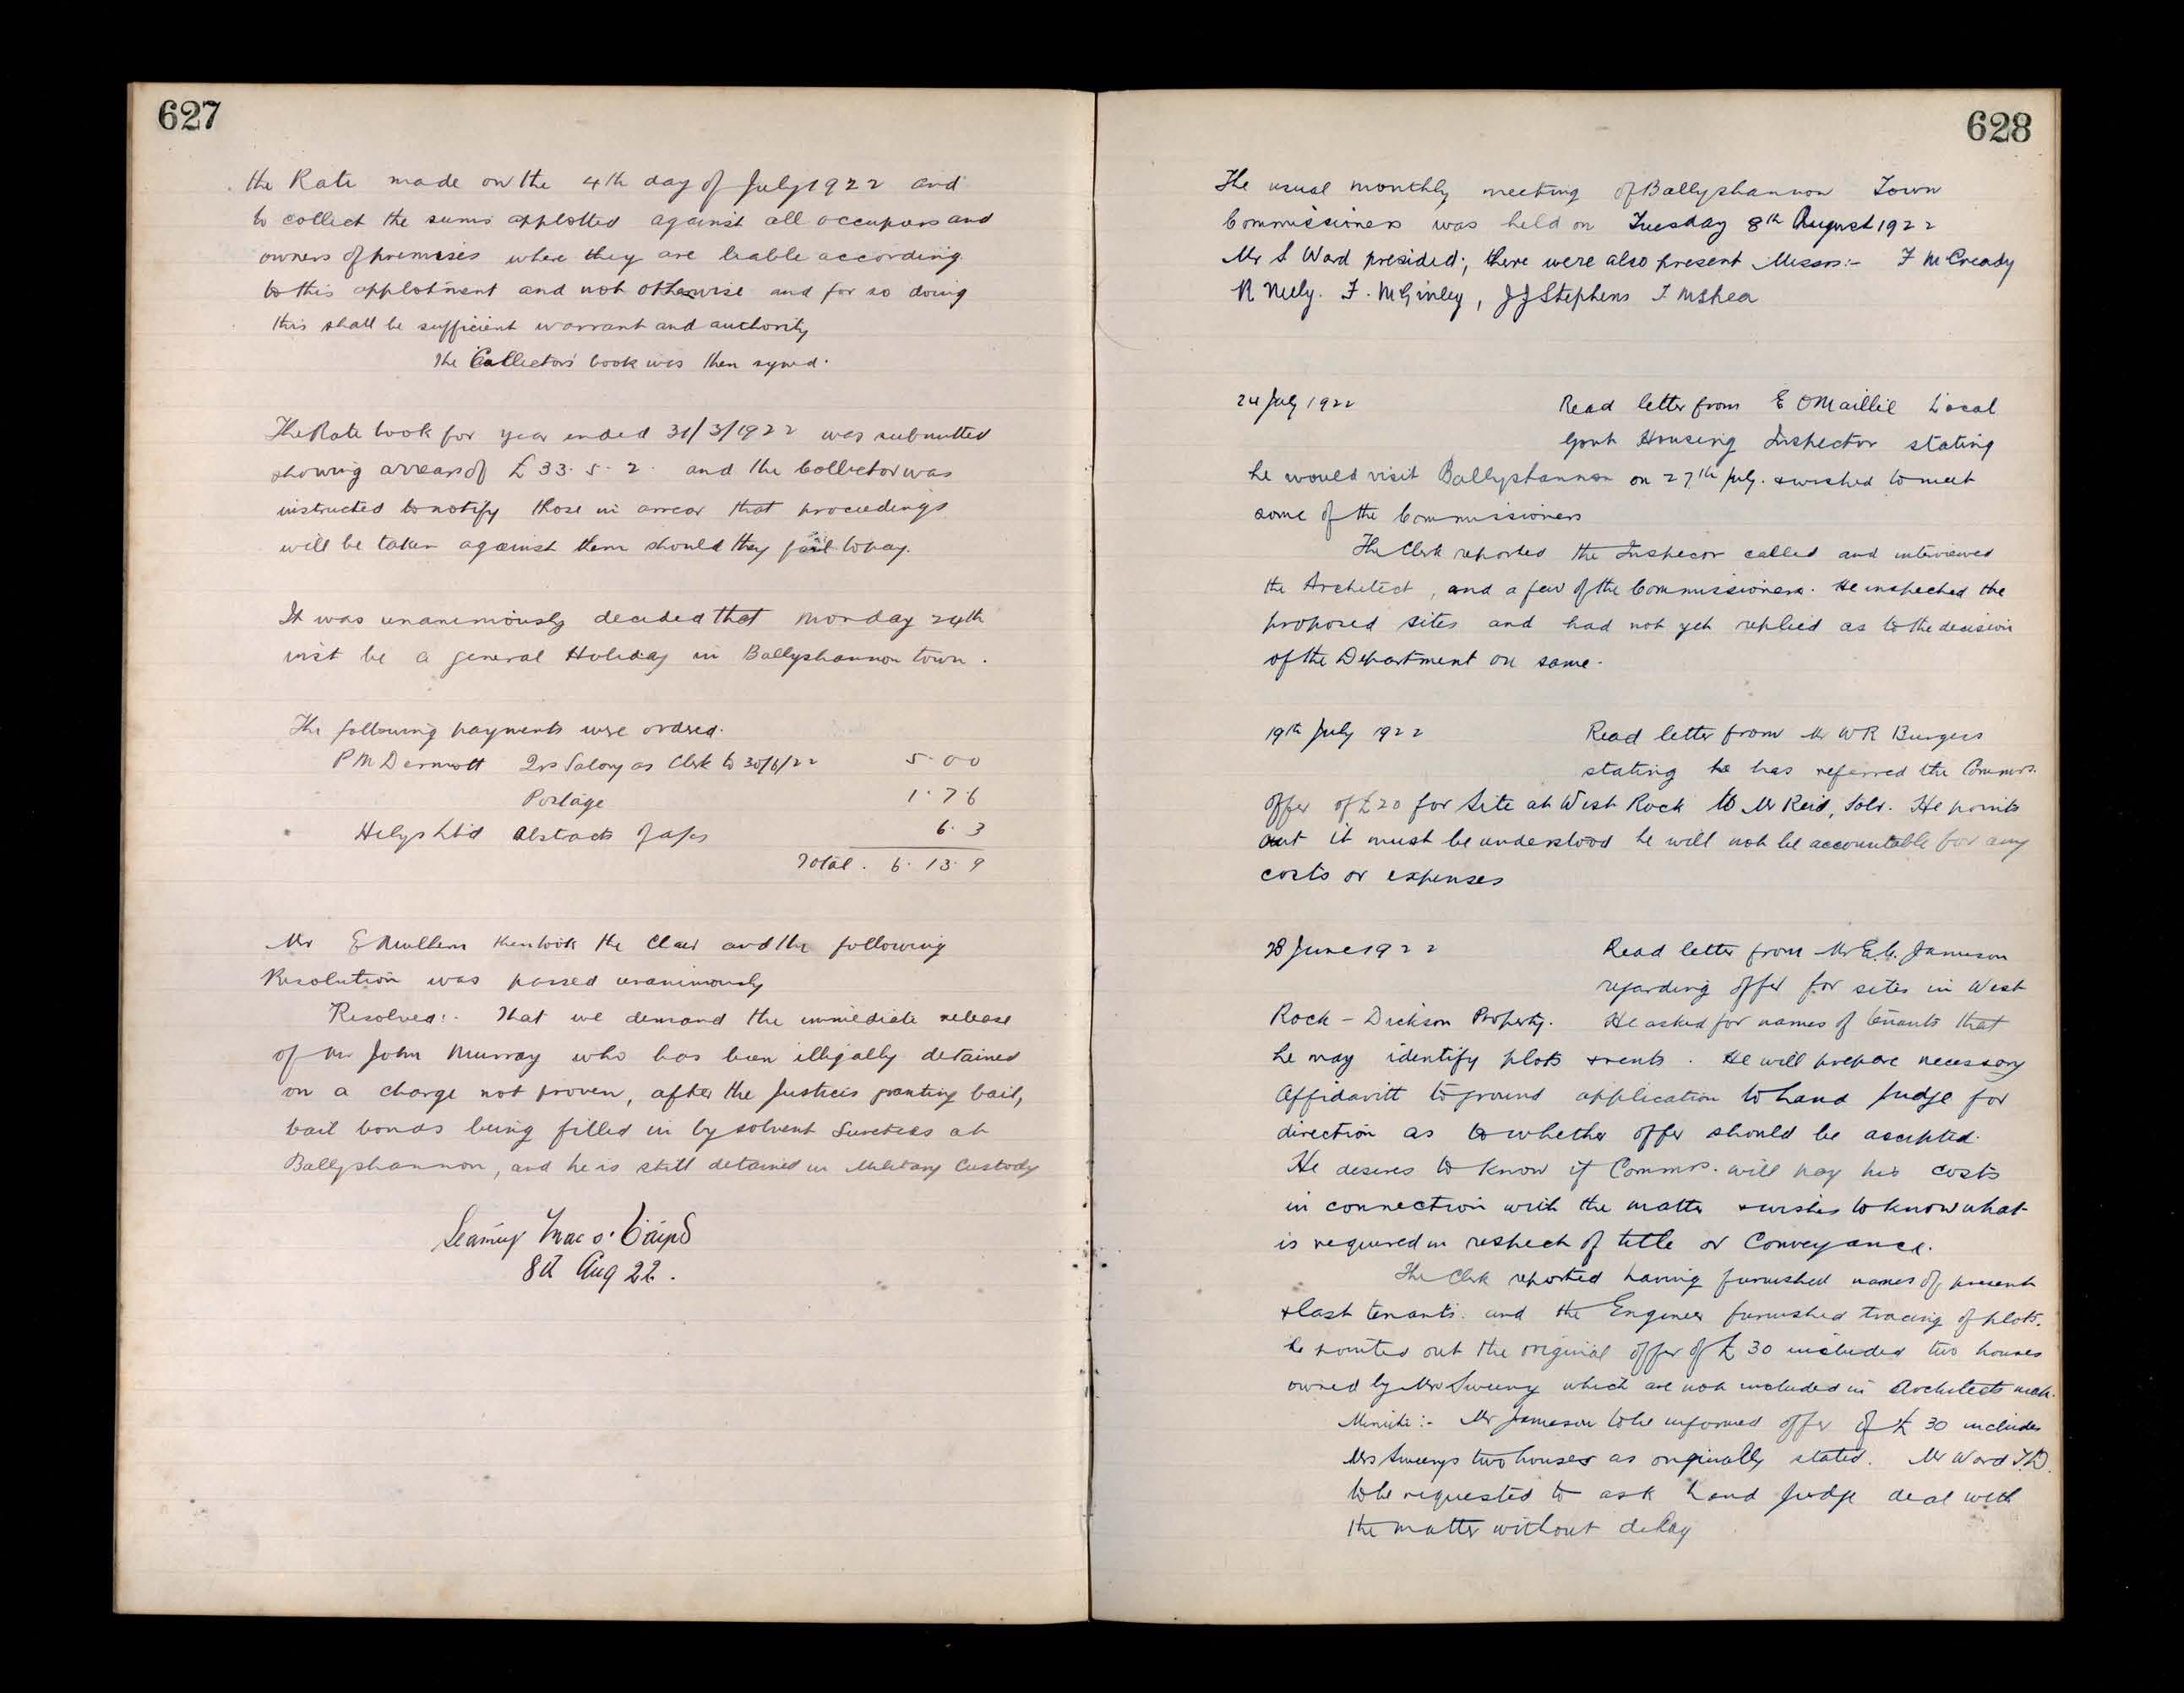 627
the Rate made on the 4th day of July 1922 and
to collect the sums applotted against all occupiers and
owners of premises where they are leable according
to this applotment and not otherwise and for so doing
this shall be sufficient warrant and authority
The Collectors book was then signed.
The Rate book for year ended 31/3/1922 was submitted
showing arrears of £33.5.2. and the Collector was
instructed to notify those in arrear that proceedings
will be taken against them should they fail to pay.
It was unanimously decided that Monday 24th
inst be a general Holiday in Ballyshannon town.
The following payments were ordered.
P McDermott Qrs Salary as Clerk to 30/6/22 5.0.0
Postage 1.7.6
Helys Ltd Abstracts of a/cs 6.3
Total. 6.13.9
Mr E Mullen then took the Chair and the following
Resolution was passed unanimously
Resolved:- That we demand the immediate release
of Mr John Murray who has been illegally detained
on a charge not proven, after the Justices granting bail,
bail bonds being filled in by solvent Sureties at
Ballyshannon, and he is still detained in Military Custody
Seamus Mac
8th Aug 22.
628
The usual monthly meeting of Ballyshannon Town
Commissioners was held on Tuesday 8th August 1922
Mr S Ward presided; there were also present Messrs:- F McCready
R Neely. F. McGinley, JJ Stephens T. McShea
24 July 1922 Read letter from E OMaillie Local
Govt Housing Inspector stating
he would visit Ballyshannon on 27th July. & wished to meet
some of the Commissioners
The Clerk reported the Inspecor called and interviewed
the Architect, and a few of the Commissioners. He inspected the
proposed sites and had not yet replied as to the decision
of the Department on same.
19th July 1922 Read letter from Mr WR Burgess
stating he has referred the Commrs.
offer of £20 for Site at West Rock to Mr Reid, Solr. He points
out it must be understood he will not be accountable for any
costs or expenses
28 June 1922 Read letter from Mr E.C. Jameson
regarding offer for sites in West
Rock - Dickson Property. He asked for names of tenants that
he may identify plots & rents. He will prepare necessary
Affidavitt to ground application to Land Judge for
direction as to whether offer should be accepted.
He desires to know if Commrs. will pay his costs
in connection with the matter & wishes to know what
is required in respect of title or Conveyance.
The Clerk reported having furnished names of present
& last tenants. and the Engineer furnished tracing of plots.
he pointed out the original offer of £30 included two houses
owned by Mrs Sweeny which are not included in Architects
Minute:- Mr Jameson to be informed offer of £30 includes
Mrs Sweenys two houses as originally stated. Mr Ward T.D.
to be requested to ask Land Judge deal with
the matter without delay